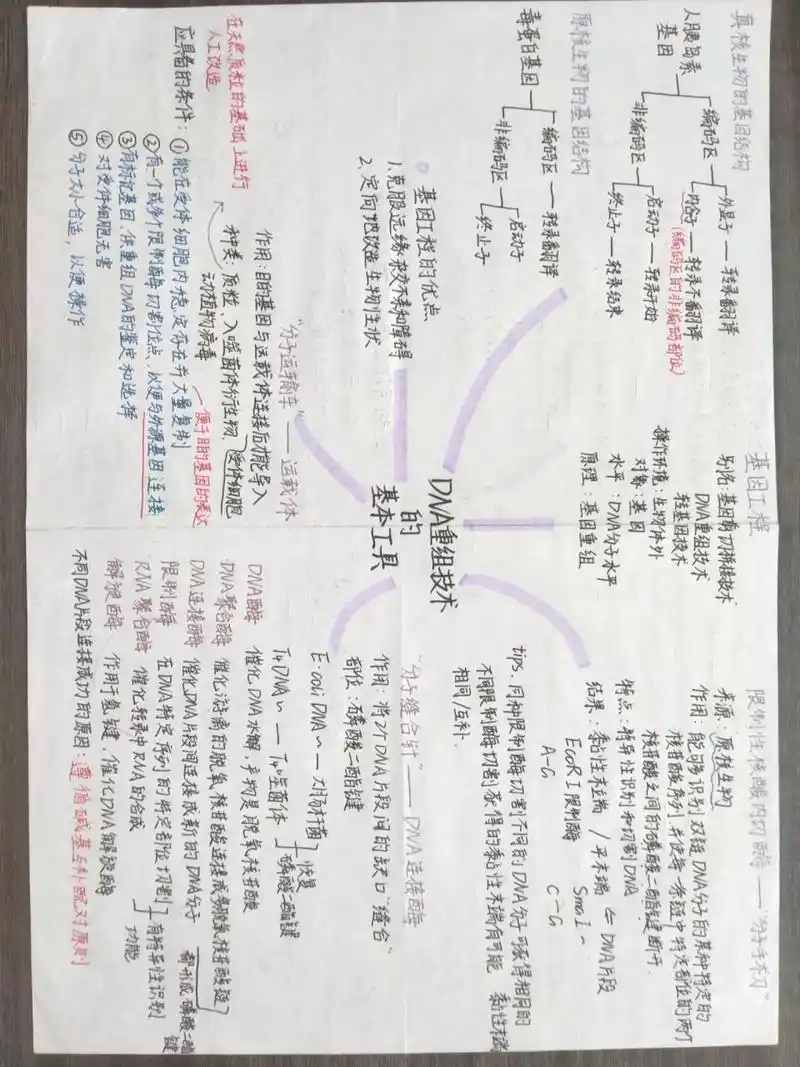 DNA重组技术
的
基本工具
真核生物的基因结构
人胰岛素
基因
编码区
外显子 — 转录翻译
内含子 — 转录不翻译
(编码区的非编码部位)
非编码区
启动子 — 转录开始
终止子 — 转录结束
原核生物的基因结构
毒蛋白基因
编码区 — 转录翻译
非编码区
启动子
终止子
基因工程的优点
1、克服远缘杂交不亲和障碍
2、定向地改造生物性状
"分子运输车" — 运载体
作用:目的基因与运载体连接后才能导入
受体细胞
种类:质粒、λ噬菌体衍生物、
动植物病毒
在天然质粒的基础上进行
人工改造
便于目的基因的表达
应具备的条件:① 能在受体细胞内稳定存在并大量复制
② 有一个或多个限制酶切割位点,以便与外源基因连接
③ 有标记基因,供重组DNA的鉴定和选择
④ 对受体细胞无害
⑤ 分子大小合适,以便操作
基因工程
别名:基因剪切拼接技术
DNA重组技术
转基因技术
操作环境:生物体外
对象:基因
水平:DNA分子水平
原理:基因重组
限制性核酸内切酶 — "分子手术刀"
来源:原核生物
作用:能够识别双链DNA分子的某种特定的
核苷酸序列,并使每一条链中特定部位的两个
核苷酸之间的磷酸二酯键断开.
特点:特异性识别和切割DNA
结果:黏性末端 / 平末端 ← DNA片段
EcoRI限制酶 SmaI~
A-G C-G
tips:同种限制酶切割不同的DNA分子可获得相同的
黏性末端
不同限制酶切割获得的黏性末端有可能
相同/互补.
"分子缝合针" — DNA连接酶
作用:将两个DNA片段间的缺口"缝合"
部位:磷酸二酯键
E·coliDNA~ — 大肠杆菌
T4DNA~ — T4噬菌体
恢复
磷酸二酯键
DNA酶 催化DNA水解,产物是脱氧核苷酸
DNA聚合酶 催化游离的脱氧核苷酸连接成多脱氧核苷酸链
DNA连接酶 催化DNA片段间连接成新的DNA分子
都形成磷酸二酯键
限制酶 在DNA特定序列的特定部位切割
RNA聚合酶 催化转录中RNA的合成
有特异性识别
功能
解旋酶 作用于氢键,催化DNA解旋酶
不同DNA片段连接成功的原因:遵循碱基互补配对原则